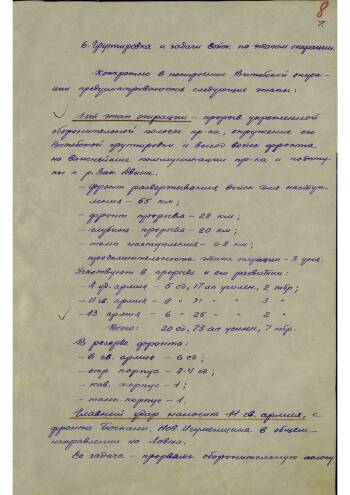 8
7.
6. Группировка и задачи войск по этапам операции.
Конкретно в построении Витебской опера-
ции предусматриваются следующие этапы:
1-ый этап операции – прорыв укрепленной
оборонительной полосы пр-ка, окружение его
Витебской группировки и выход войск фронта
на важнейшие коммуникации пр-ка и подступы
к р. Зап. Двина.
– фронт развертывания войск для наступ-
ления – 55 км;
– фронт прорыва – 28 км;
– глубина прорыва – 20 км;
– темп наступления – 6-8 км;
продолжительность этапа операции – 3 дня.
Участвуют в прорыве и его развитии:
– 4 уд. армия – 5 сд, 17 ап усилен, 2 тбр;
– 11 гв. армия – 9 " 31 " 3 "
– 43 армия – 6 " 25 " 2 "
Всего: 20 сд, 73 ап усилен, 7 тбр.
В резерве фронта:
– 6 гв. армия – 6 сд;
– стр. корпус – 3-4 сд;
– кав. корпус – 1;
– танк. корпус – 1.
Главный удар наносит 11 гв. армия, с
фронта Боскани, Нов. Игуменщина в общем
направлении на
Ее задача – прорвать оборонительную полосу